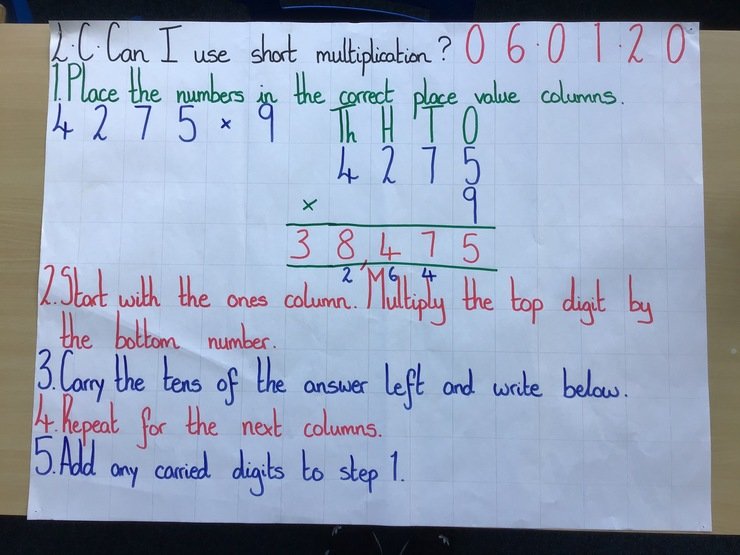 L.C. Can I use short multiplication? 06.01.20
1. Place the numbers in the correct place value columns.
4 2 7 5 × 9 Th H T O
4 2 7 5
× 9
3 8 4 7 5
2 6 4
2. Start with the ones column. Multiply the top digit by
the bottom number.
3. Carry the tens of the answer left and write below.
4. Repeat for the next columns.
5. Add any carried digits to step 1.